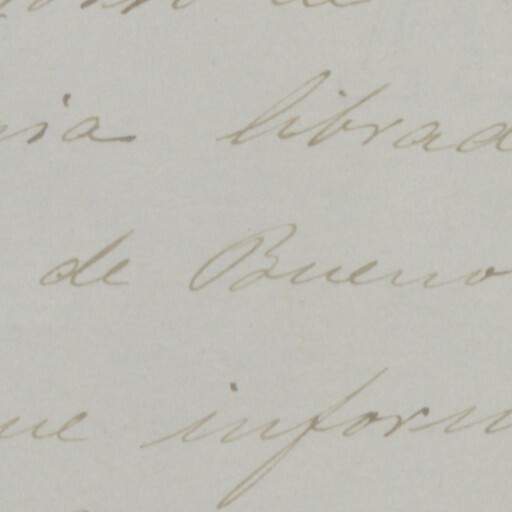 librad
de Bueno
ue inform